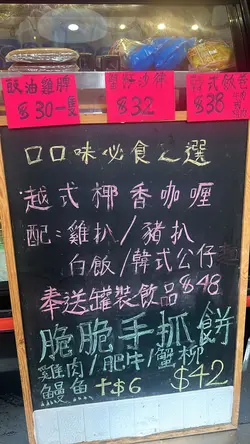 豉油雞髀
$30一隻
$32
$38
口口味必食之選
越式椰香咖喱
配:雞扒/豬扒
白飯/韓式公仔
奉送罐裝飲品$48
脆脆手抓餅
雞肉/肥牛/蟹柳
鰻魚+$6 $42